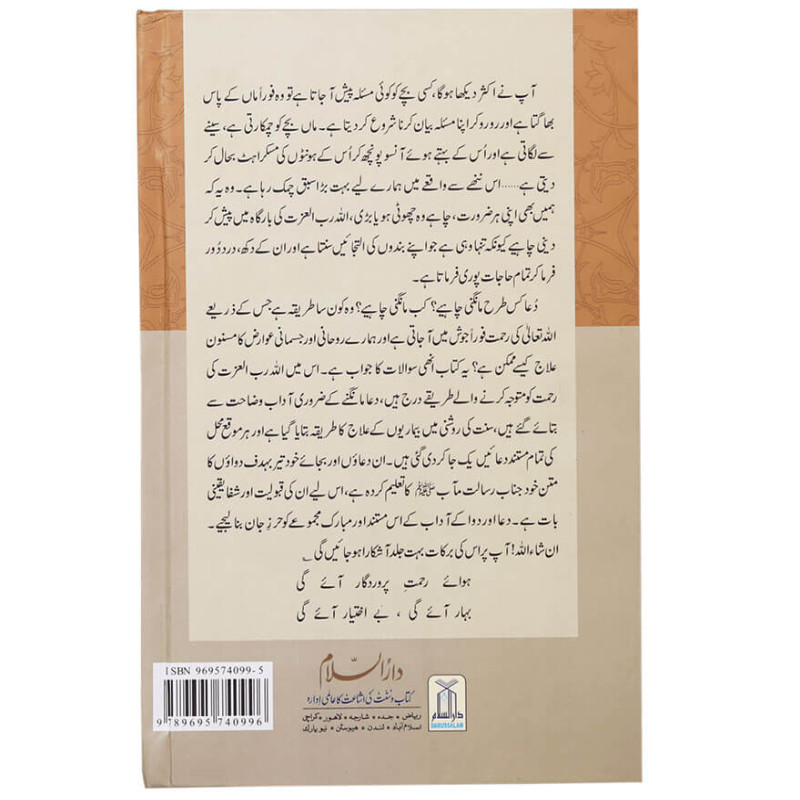 آپ نے اکثر دیکھا ہوگا، کسی بچے کو کوئی مسئلہ پیش آ جاتا ہے تو وہ فوراً ماں کے پاس
بھاگتا ہے اور رو رو کر اپنا مسئلہ بیان کرنا شروع کر دیتا ہے۔ ماں بچے کو چمکارتی ہے، سینے
سے لگاتی ہے اور اُس کے بہتے ہوئے آنسو پونچھ کر اُس کے ہونٹوں کی مسکراہٹ بحال کر
دیتی ہے...... اس ننھے سے واقعے میں ہمارے لیے بہت بڑا سبق چمک رہا ہے۔ وہ یہ کہ
ہمیں بھی اپنی ہر ضرورت، چاہے وہ چھوٹی ہو یا بڑی، اللہ رب العزت کی بارگاہ میں پیش کر
دینی چاہیے کیونکہ تنہا وہی ہے جو اپنے بندوں کی التجائیں سنتا ہے اور ان کے دکھ، درد دُور
فرما کر تمام حاجات پوری فرماتا ہے۔
دُعا کس طرح مانگنی چاہیے؟ کب مانگنی چاہیے؟ وہ کون سا طریقہ ہے جس کے ذریعے
اللہ تعالیٰ کی رحمت فوراً جوش میں آ جاتی ہے اور ہمارے روحانی اور جسمانی عوارض کا مسنون
علاج کیسے ممکن ہے؟ یہ کتاب انھی سوالات کا جواب ہے۔ اس میں اللہ رب العزت کی
رحمت کو متوجہ کرنے والے طریقے درج ہیں، دعا مانگنے کے ضروری آداب وضاحت سے
بتائے گئے ہیں، سنت کی روشنی میں بیماریوں کے علاج کا طریقہ بتایا گیا ہے اور ہر موقع محل
کی تمام مستند دعائیں یک جا کر دی گئی ہیں۔ ان دعاؤں اور بجائے خود تیر بہدف دواؤں کا
متن خود جناب رسالت مآب ﷺ کا تعلیم کردہ ہے، اس لیے ان کی قبولیت اور شفا یقینی
بات ہے۔ دعا اور دوا کے آداب کے اس مستند اور مبارک مجموعے کو حرزِ جان بنا لیجیے۔
ان شاء اللہ! آپ پر اس کی برکات بہت جلد آشکارا ہو جائیں گی ؎
ہوائے رحمتِ پروردگار آئے گی
بہار آئے گی ، بے اختیار آئے گی
دارُالسّلام
کتاب و سُنّت کی اشاعت کا عالمی ادارہ
ریاض • جدہ • شارجہ • لاہور • کراچی
اسلام آباد • لندن • ہیوسٹن • نیویارک
دارالسلام
DARUSSALAM
ISBN 969574099-5
9 789695 740996